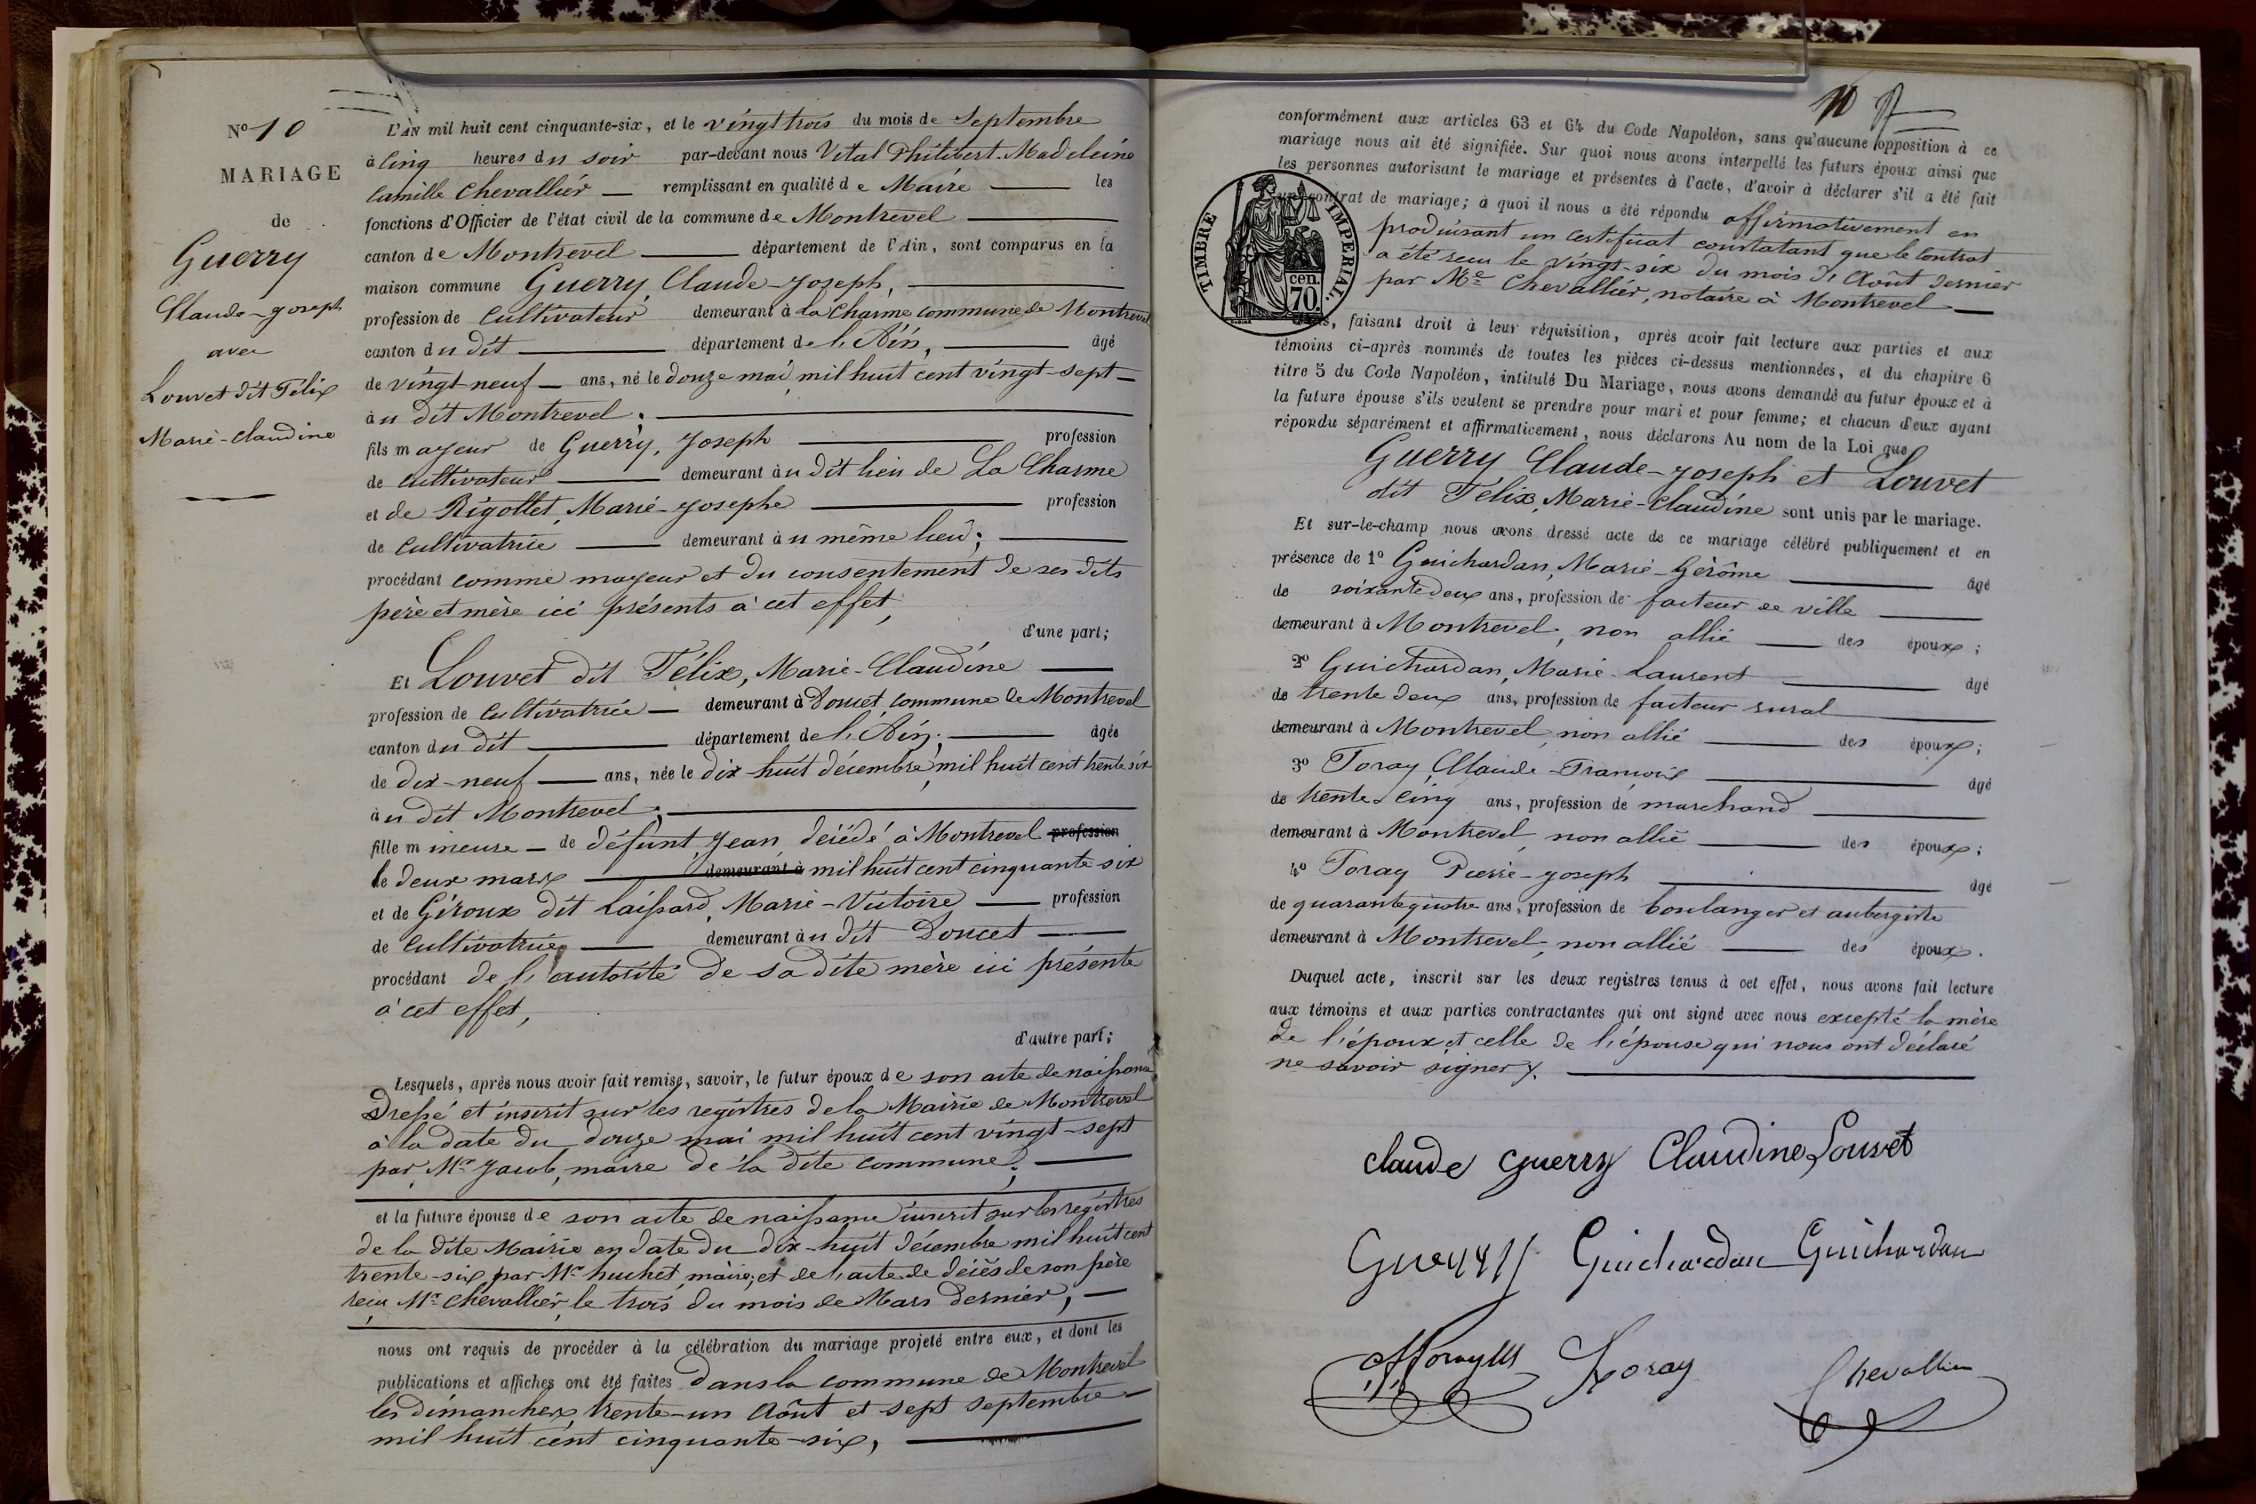 N° 10
MARIAGE
de
Guerry
Claude-Joseph
avec
Louvet dit Félix
Marie-Claudine
L'AN mil huit cent cinquante-six, et le vingt trois du mois de Septembre
à cinq heures du soir par-devant nous Vital Philibert Madeleine
Camille Chevallier remplissant en qualité de Maire les
fonctions d'Officier de l'état civil de la commune de Montrevel
canton de Montrevel département de l'Ain, sont comparus en la
maison commune Guerry, Claude-Joseph,
profession de Cultivateur demeurant à La Charme commune de Montrevel
canton du dit département de l'Ain, âgé
de vingt-neuf ans, né le douze mai mil huit cent vingt-sept
à u dit Montrevel;
fils mayeur de Guerry, Joseph profession
de Cultivateur demeurant à u dit lieu de La Charme
et de Rigollet, Marie-Josephe profession
de Cultivatrice demeurant à u même lieu;
procédant comme mayeur et du consentement de ses dits
père et mère ici présents à cet effet,
d'une part;
Et Louvet dit Félix, Marie-Claudine
profession de Cultivatrice demeurant à Doucet, commune de Montrevel
canton du dit département de l'Ain; âgée
de dix-neuf ans, née le dix huit décembre mil huit cent trente six
à u dit Montrevel;
fille mineure de défunt Jean, décédé à Montrevel profession
le deux mars demeurant à mil huit cent cinquante-six
et de Géroux dit Laissard, Marie-Victoire profession
de Cultivatrice demeurant à u dit Doucet
procédant de l'autorité de sa dite mère ici présente
à cet effet,
d'autre part;
Lesquels, après nous avoir fait remise, savoir, le futur époux de son acte de naissance
dressé et inscrit sur les registres de la Mairie de Montrevel
à la date du douze mai mil huit cent vingt-sept
par Mr Jacob, maire de la dite commune;
et la future épouse de son acte de naissance inscrit sur les registres
de la dite Mairie en date du dix-huit décembre mil huit cent
trente-six par Mr huchet, maire; et de l'acte de décès de son père
reçu Mr Chevallier, le trois du mois de Mars dernier,
nous ont requis de procéder à la célébration du mariage projeté entre eux, et dont les
publications et affiches ont été faites dans la commune de Montrevel
les dimanches trente-un Août et sept septembre
mil huit cent cinquante-six,
10
conformément aux articles 63 et 64 du Code Napoléon, sans qu'aucune opposition à ce
mariage nous ait été signifiée. Sur quoi nous avons interpellé les futurs époux ainsi que
les personnes autorisant le mariage et présentes à l'acte, d'avoir à déclarer s'il a été fait
un contrat de mariage; à quoi il nous a été répondu affirmativement en
produisant un certificat constatant que le Contrat
a été reçu le vingt-six du mois d'Août dernier
par Me Chevallier, notaire à Montrevel
TIMBRE IMPÉRIAL.
cen.
70.
faisant droit à leur réquisition, après avoir fait lecture aux parties et aux
témoins ci-après nommés de toutes les pièces ci-dessus mentionnées, et du chapitre 6
titre 5 du Code Napoléon, intitulé Du Mariage, nous avons demandé au futur époux et à
la future épouse s'ils veulent se prendre pour mari et pour femme; et chacun d'eux ayant
répondu séparément et affirmativement, nous déclarons Au nom de la Loi que
Guerry Claude-Joseph et Louvet
dit Félix, Marie-Claudine sont unis par le mariage.
Et sur-le-champ nous avons dressé acte de ce mariage célébré publiquement et en
présence de 1° Guichardan, Marie-Gérôme âgé
de soixante deux ans, profession de facteur de ville
demeurant à Montrevel, non allié des époux;
2° Guichardan, Marie-Laurent âgé
de trente deux ans, profession de facteur rural
demeurant à Montrevel, non allié des époux;
3° Toray, Claude-François âgé
de trente cinq ans, profession de marchand
demeurant à Montrevel, non allié des époux;
4° Toray Pierre-Joseph âgé
de quarante quatre ans, profession de boulanger et aubergiste
demeurant à Montrevel, non allié des époux.
Duquel acte, inscrit sur les deux registres tenus à cet effet, nous avons fait lecture
aux témoins et aux parties contractantes qui ont signé avec nous excepté la mère
de l'époux et celle de l'épouse qui nous ont déclaré
ne savoir signer.
Claude Guerry Claudine Louvet
Guerry Guichardan Guichardan
Toray Chevallier